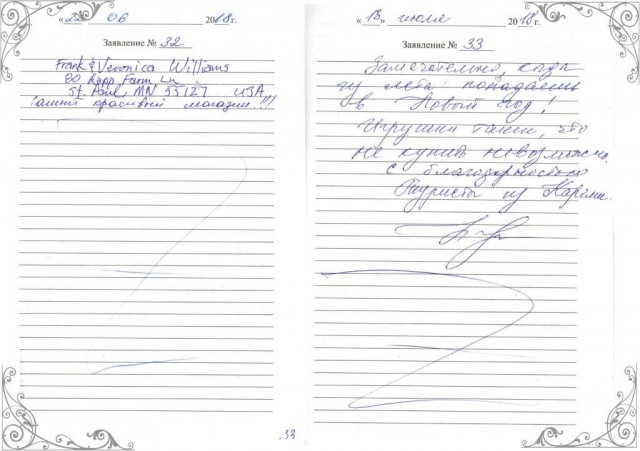 06 2018г.
Заявление № 32
Frank & Veronica Williams
80 Rapp Farm Ln
St. Paul, MN 55127 USA
Самий красивий магазин!!!
33
«13» июля 2018г.
Заявление № 33
Замечательно, когда
из лета попадаешь
в Новый год!
Игрушки такие, что
не купить невозможно.
с благодарностью
Туристы из